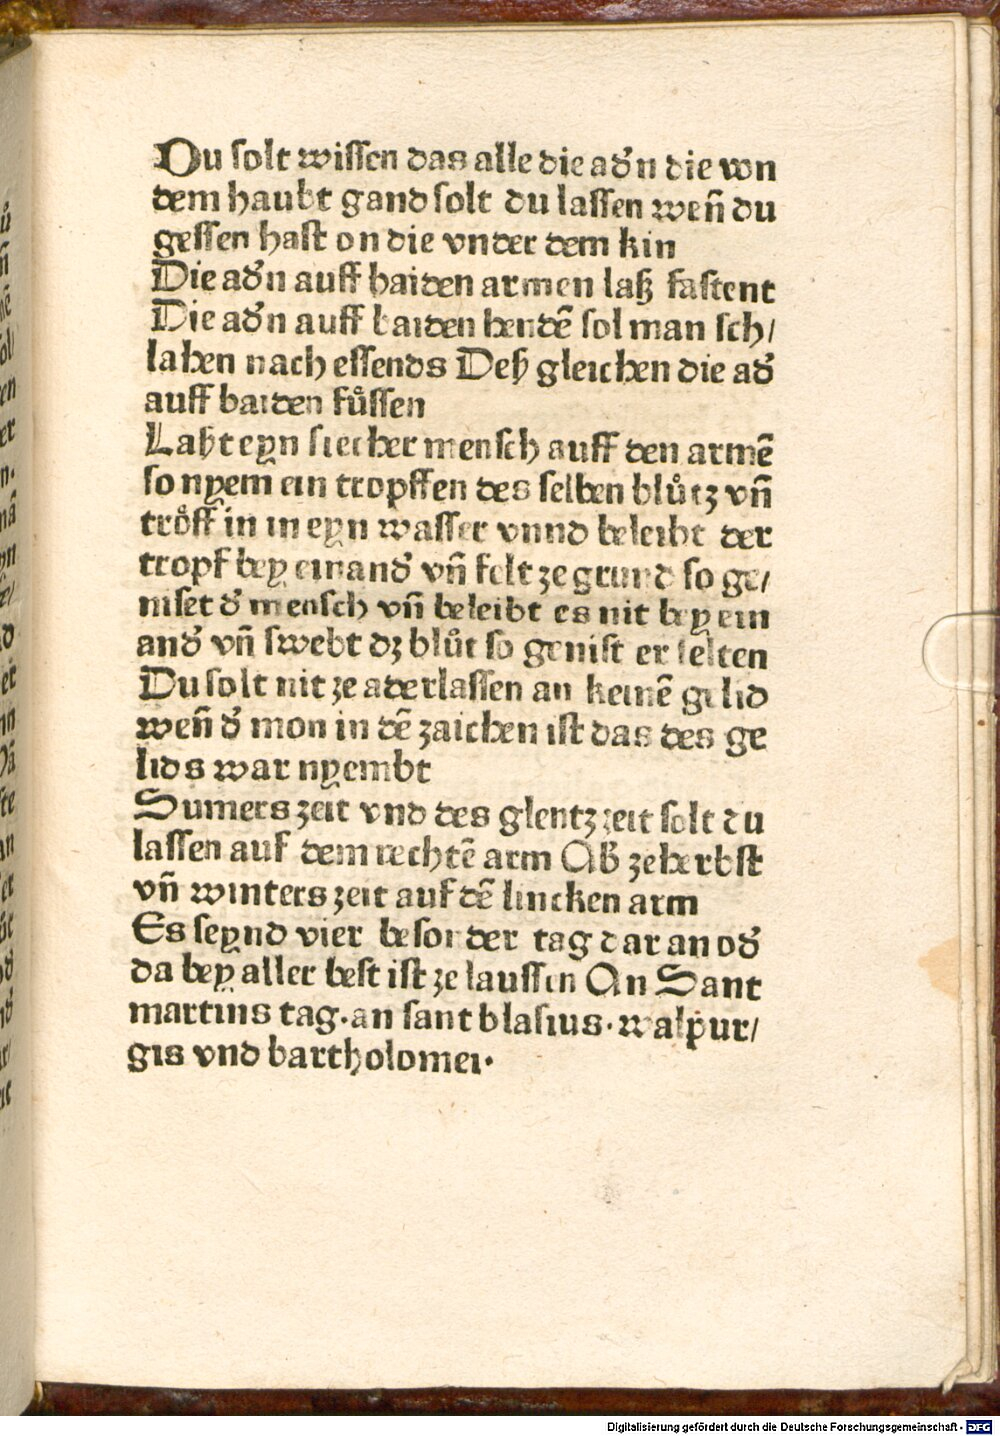 Du solt wissen das alle die adn̄ die von
dem haubt gand solt du lassen weñ du
gessen hast on die vnder dem kin
Die ad'n auff baiden armen laß fastent
Die ad'n auff baiden hendē sol man sch/
lahen nach essends Deß gleichen die ad'
auff baiden fuͤssen
Laßt eyn siecher mensch auff den armē
so nyem ein tropffen des selben bluͦtz vñ
troͤff in in eyn wasser vnnd beleibt der
tropf bey einand' vñ felt ze grund so ge/
niset d' mensch vñ beleibt es nit bey ein
and' vñ swebt dz bluͦt so genist er selten
Du solt nit ze aderlassen an keinē gelid
weñ d' mon in dē zaichen ist das des ge
lids war nyembt
Sumers zeit vnd des glentz zeit solt du
lassen auf dem rechtē arm Ab' ze herbst
vñ winters zeit auf dē lincken arm
Es seynd vier besonder tag dar an od'
da bey aller best ist ze laussen An Sant
martins tag·an sant blasius·walpur/
gis vnd bartholomei·
Digitalisierung gefördert durch die Deutsche Forschungsgemeinschaft - DFG